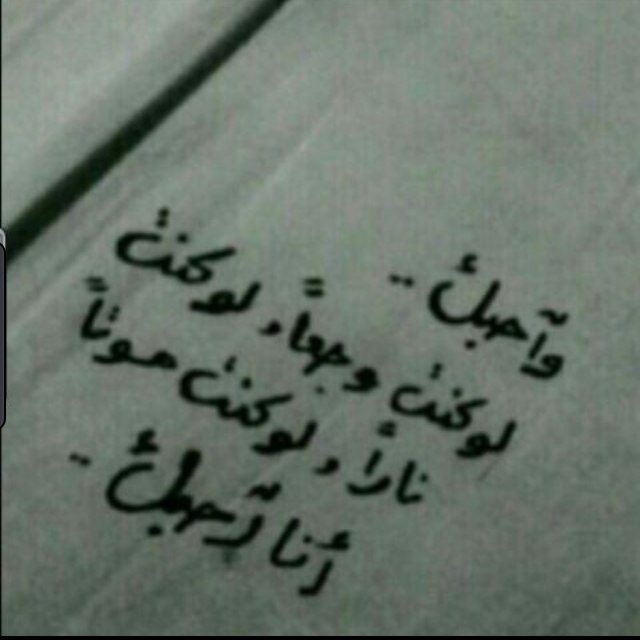 وآحبك ..
لو كنت وجعاً، لو كنت
ناراً، لو كنت موتاً
أنا آحبك ..